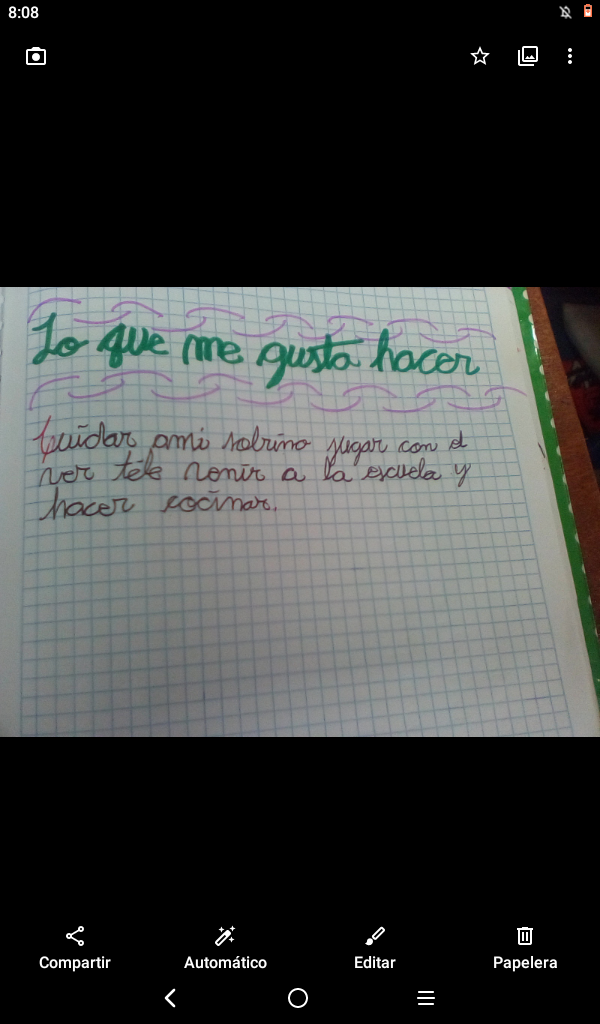 8:08
Lo que me gusta hacer
Cuidar ami sobrino jugar con el
ver tele venir a la escuela y
hacer cocinar.
Compartir
Automático
Editar
Papelera